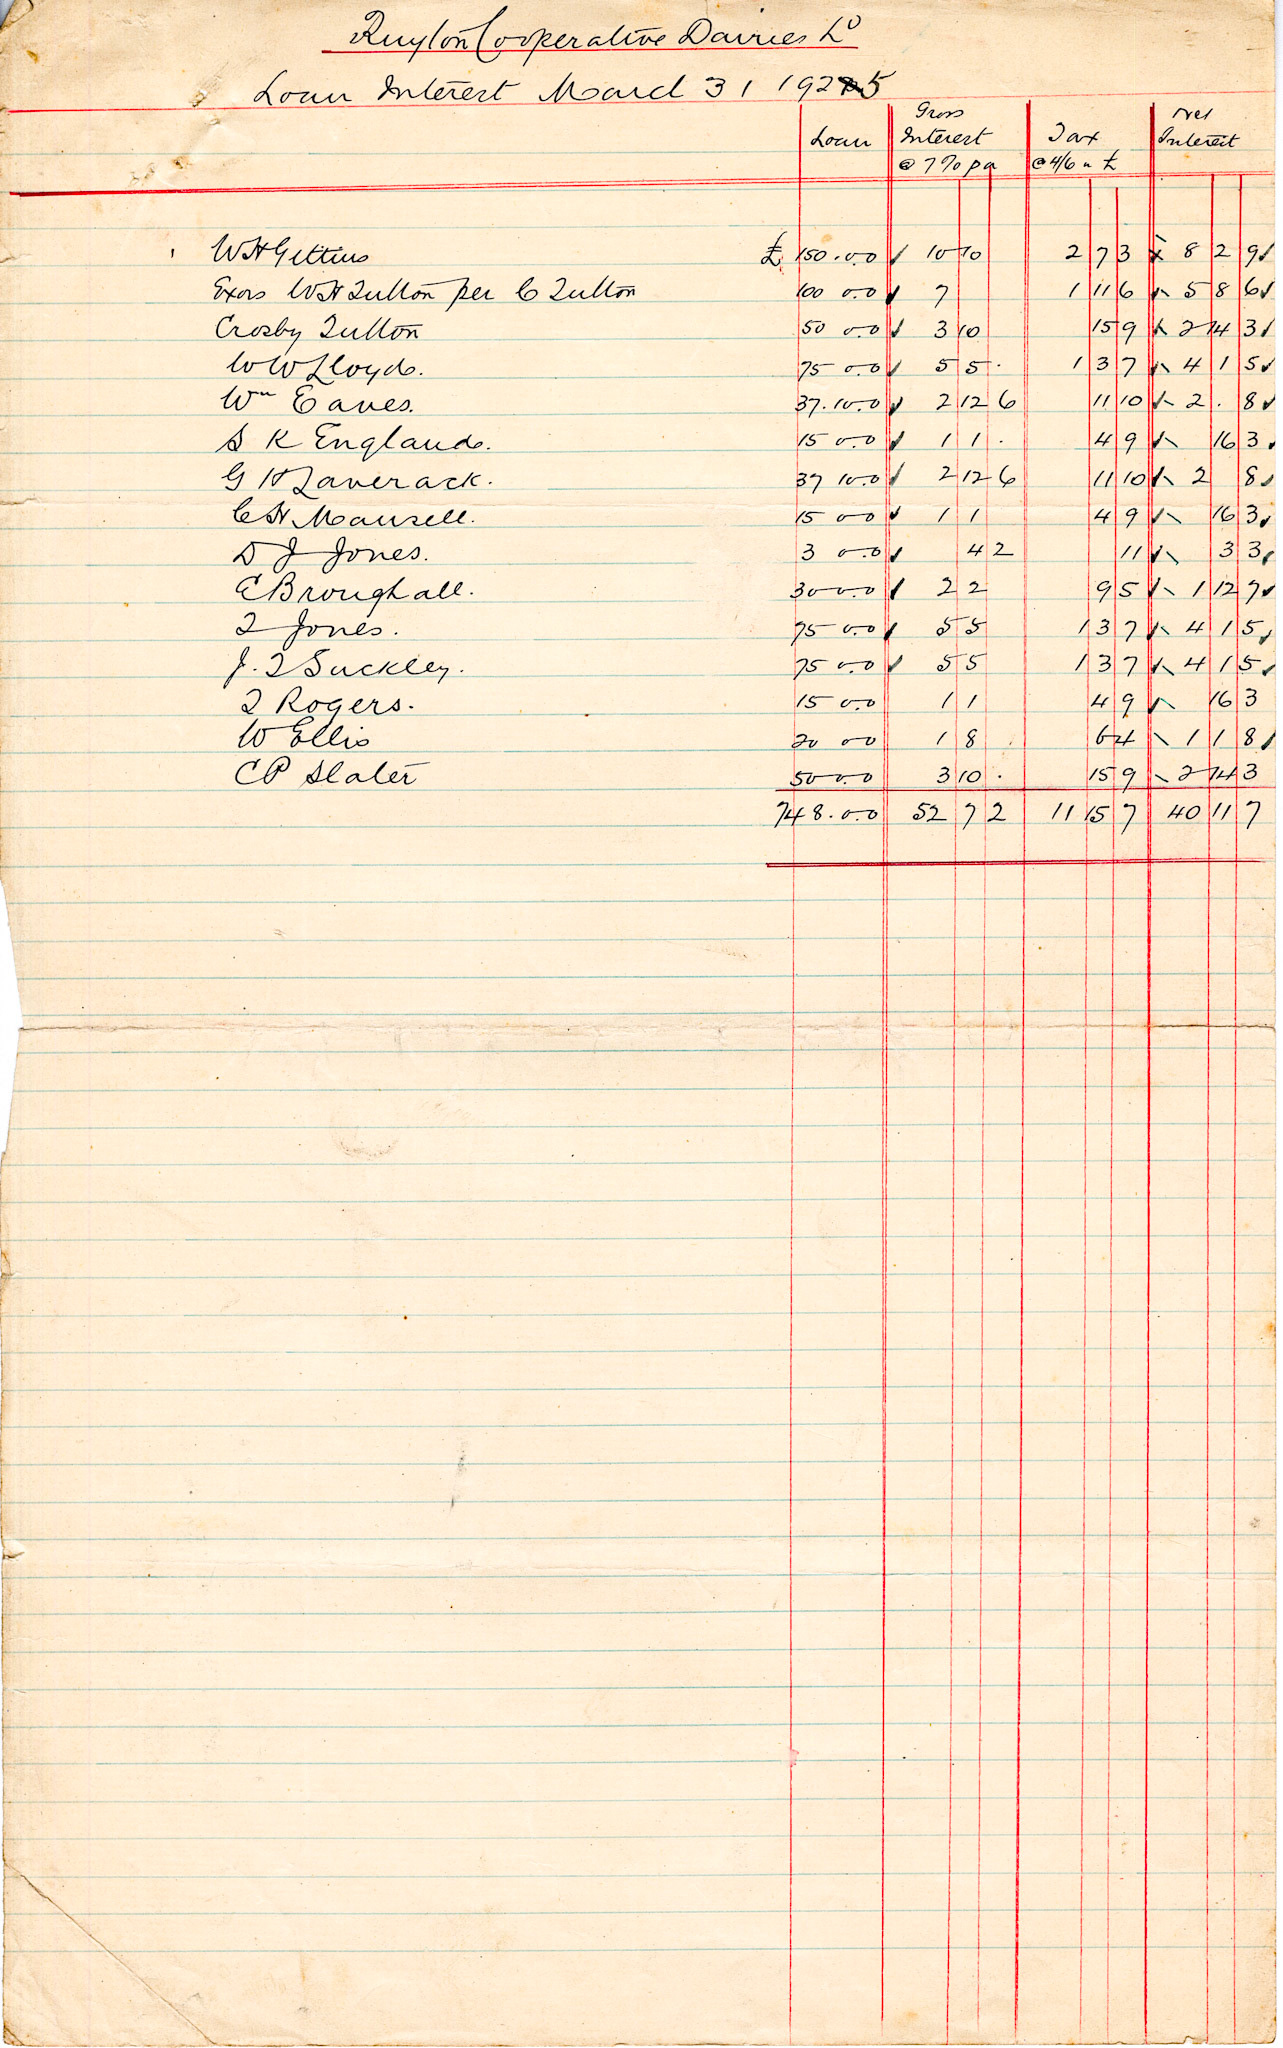 Ruyton Cooperative Dairies Ld
Loan Interest March 31 1925
Loan Gross Interest @ 7% pa Tax @ 4/6 in £ Net Interest
W H Gittins £ 150.0.0 10 10 2 7 3 8 2 9
Exors W H Tutton per C Tutton 100 0.0 7 1 11 6 5 8 6
Crosby Tutton 50 0.0 3 10 15 9 2 14 3
W W Lloyd. 75 0.0 5 5 . 1 3 7 4 1 5
Wm Eaves. 37.10.0 2 12 6 11 10 2 . 8
S K England. 15 0.0 1 1 . 4 9 16 3
G H Laverack. 37 10.0 2 12 6 11 10 2 8
C H Mansell. 15 0.0 1 1 4 9 16 3
D J Jones. 3 0.0 4 2 11 3 3
E Broughall. 30 0.0 2 2 9 5 1 12 7
T Jones. 75 0.0 5 5 1 3 7 4 1 5
J. T Suckley. 75 0.0 5 5 1 3 7 4 1 5
T Rogers. 15 0.0 1 1 4 9 16 3
W Ellis 20 0 0 1 8 6 4 1 1 8
C P Slater 50 0.0 3 10 . 15 9 2 14 3
748.0.0 52 7 2 11 15 7 40 11 7